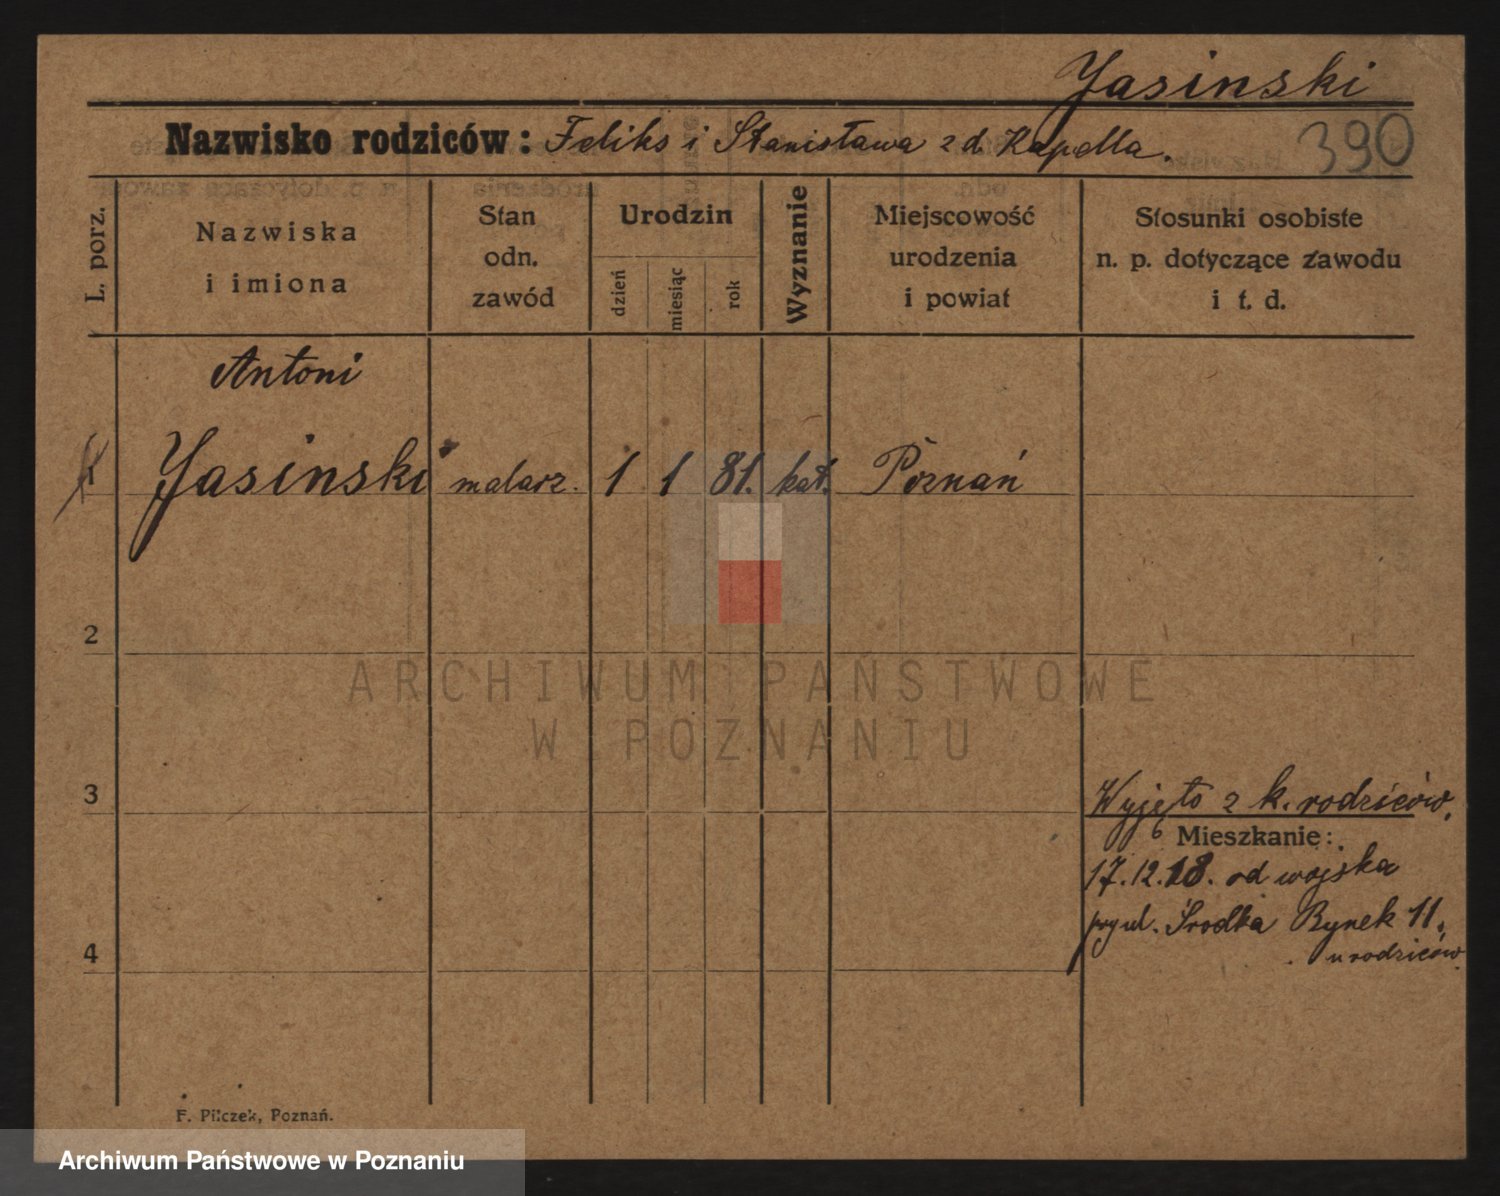 Jasinski
Nazwisko rodziców: Feliks i Stanisława z d. Kapella.
390
L. porz.
Nazwiska
i imiona
Stan
odn.
zawód
Urodzin
dzień
miesiąc
rok
Wyznanie
Miejscowość
urodzenia
i powiat
Stosunki osobiste
n. p. dotyczące zawodu
i t. d.
Antoni
1 Jasinski malarz. 1 1 81. kat. Poznań
2
ARCHIWUM PAŃSTWOWE
W POZNANIU
3
Wyjęto z k. rodziców.
Mieszkanie:
17.12.18. od wojska
przy ul. Środka Rynek 11.
u rodziców.
4
F. Pilczek, Poznań.
Archiwum Państwowe w Poznaniu